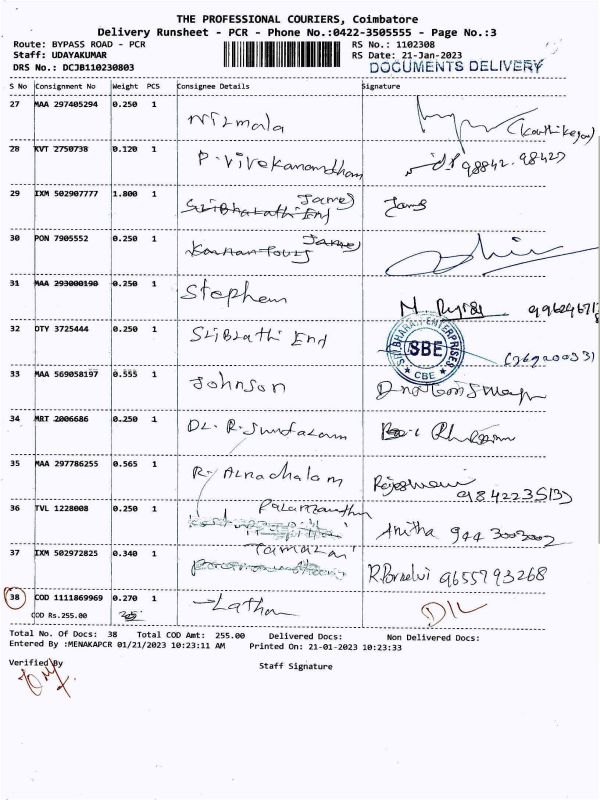 THE PROFESSIONAL COURIERS, Coimbatore
Delivery Runsheet - PCR - Phone No.:0422-3505555 - Page No.:3
Route: BYPASS ROAD - PCR
RS No.: 1102308
Staff: UDAYAKUMAR
RS Date: 21-Jan-2023
DRS No.: DCJB110230803
DOCUMENTS DELIVERY
S No Consignment No Weight PCS Consignee Details Signature
27 MAA 297405294 0.250 1
Nirmala (Karthikeyan)
28 KVT 2750738 0.120 1
P. Vivekanandham 98842.98427
29 IXM 502907777 1.800 1
James
SriBharathi End James
30 PON 7905552 0.250 1
James
Kannan Tours
31 MAA 293000190 0.250 1
Stephen
32 OTY 3725444 0.250 1
SriBrathi End
SRI BHARATHI ENTERPRISES
SBE
CBE
33 MAA 569058197 0.555 1
Johnson
34 MRT 2006686 0.250 1
Dr. R. Sundaram
35 MAA 297786255 0.565 1
R. Alnachalam Rajeswari
9842235137
36 TVL 1228008 0.250 1
Anitha 944 3003002
37 IXM 502972825 0.340 1
Tamarai
R.Porselvi 9655793268
38 COD 1111869969 0.270 1
Latha D/L
COD Rs.255.00
Total No. Of Docs: 38 Total COD Amt: 255.00 Delivered Docs: Non Delivered Docs:
Entered By :MENAKAPCR 01/21/2023 10:23:11 AM Printed On: 21-01-2023 10:23:33
Verified By
Staff Signature